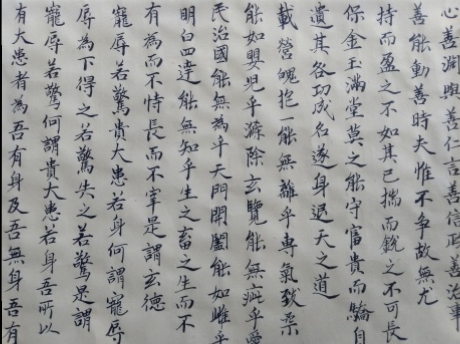 心善淵與善仁言善信政善治事
善能動善時夫惟不争故無尤
持而盈之不如其已揣而銳之不可長
保金玉滿堂莫之能守富貴而驕自
遺其咎功成名遂身退天之道
載營魄抱一能無離乎專氣致柔
能如嬰兒乎滌除玄覽能無疵乎愛
民治國能無為乎天門開闔能如雌乎
明白四達能無知乎生之畜之生而不
有為而不恃長而不宰是謂玄德
寵辱若驚貴大患若身何謂寵辱
辱為下得之若驚失之若驚是謂
寵辱若驚何謂貴大患若身吾所以
有大患者為吾有身及吾無身吾有